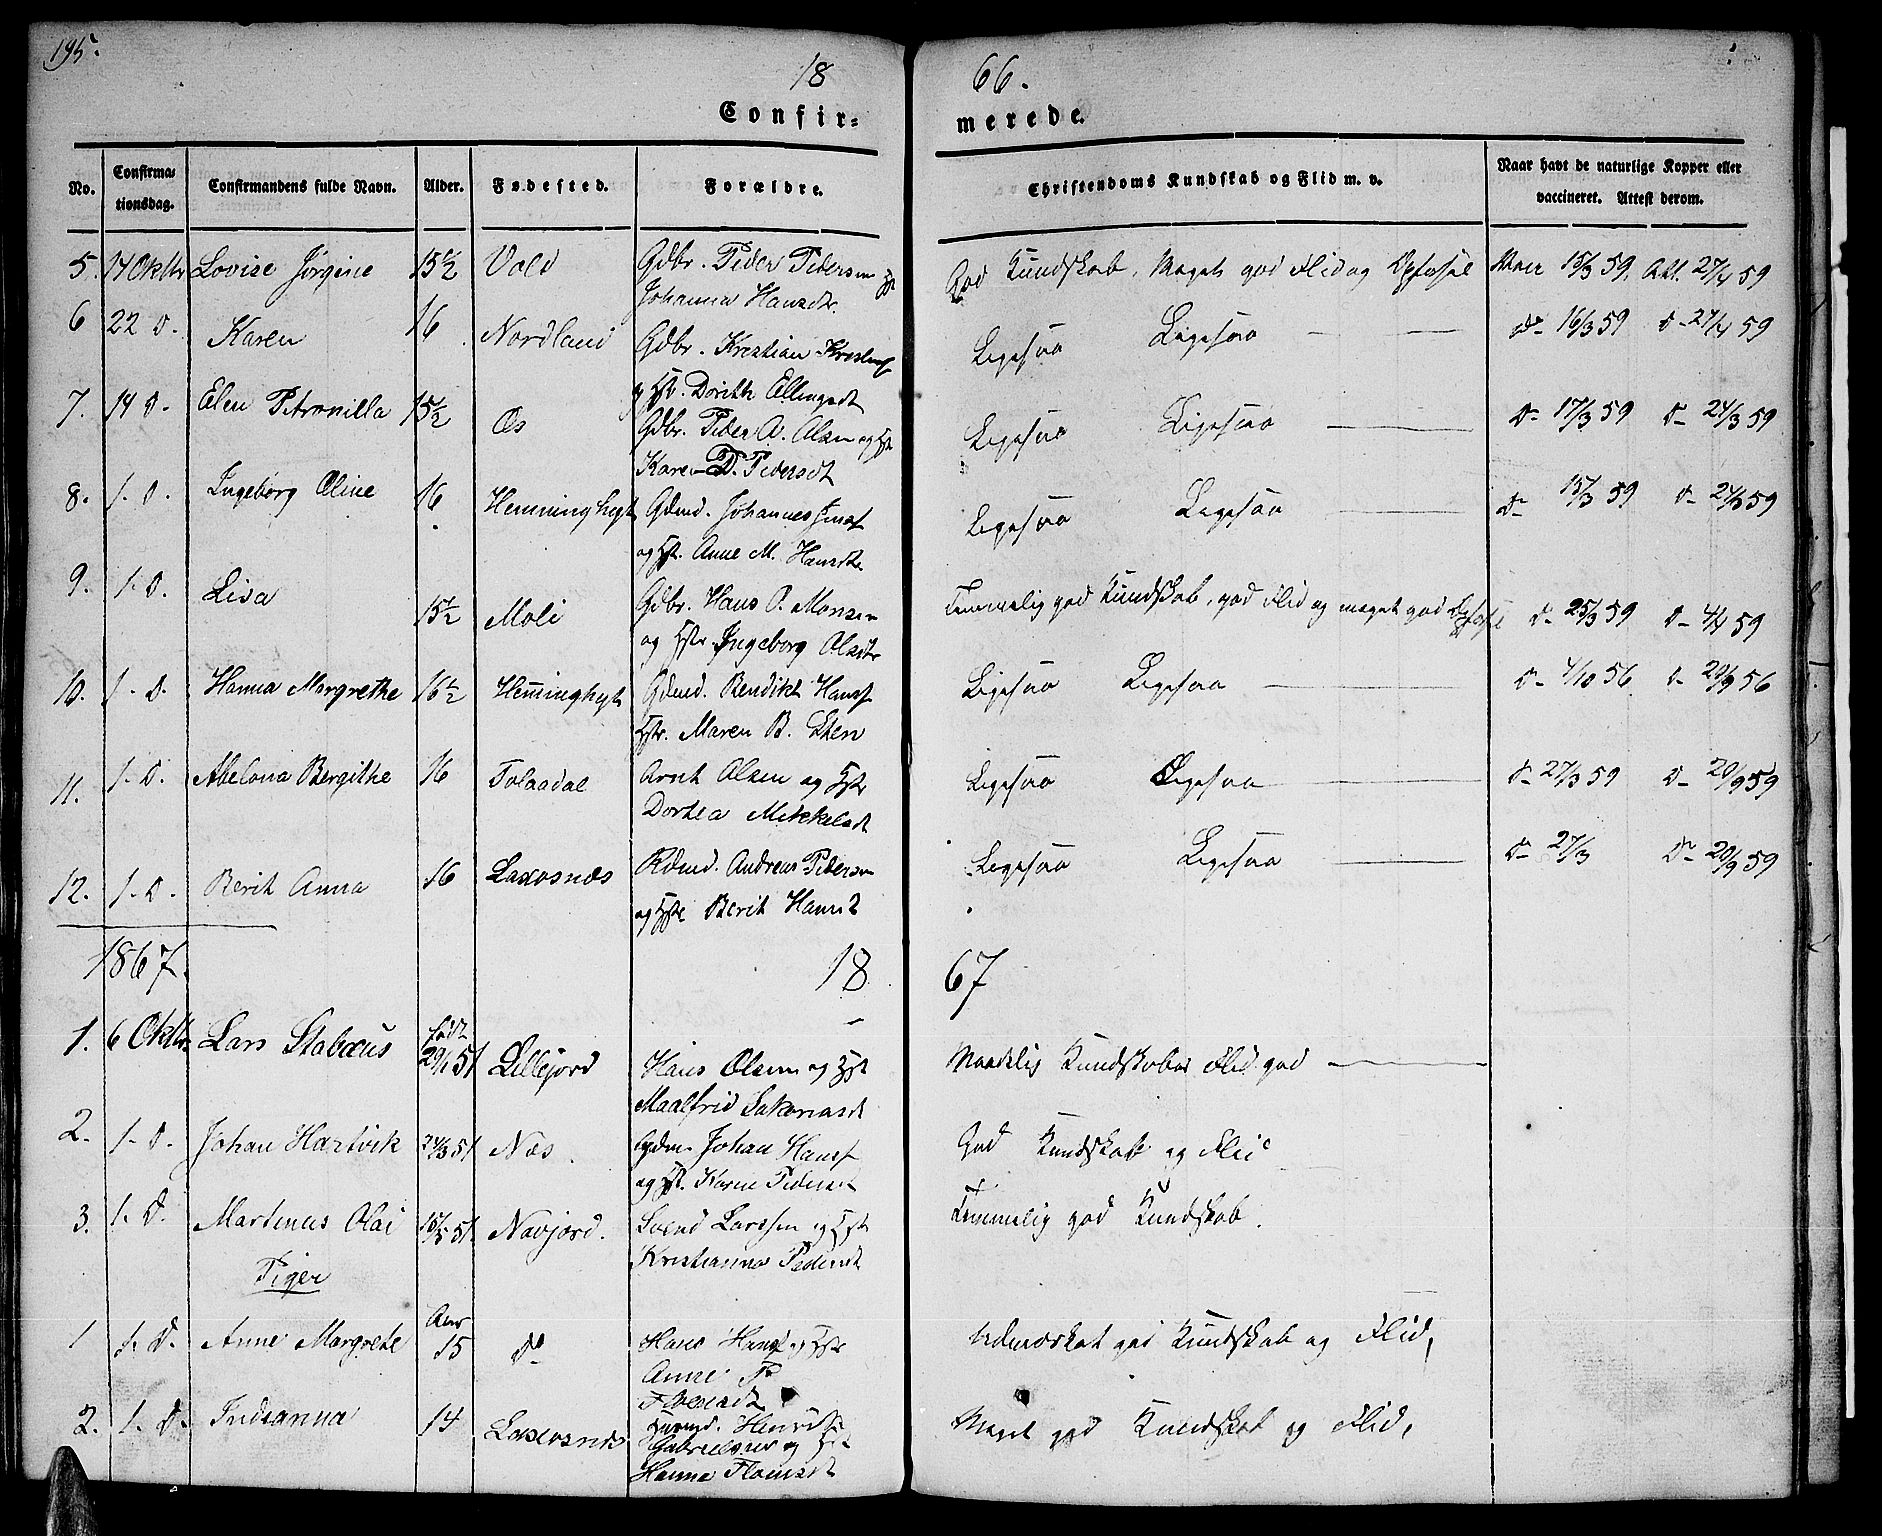 195.
18 66.
Confir= merede.
No. Confirma= tionsdag. Confirmandens fulde Navn. Alder. Fødested. Forældre. Christendoms Kundskab og Flid m. v. Naar havt de naturlige Kopper eller vaccineret. Attest derom.
5. 14 Oktbr Lovise Jørgine 15½ Vold Gdbr. Peder Pedersen Hst
Johanna Hansdtr. God Kundskab, Meget god Flid og Opførsel Vacc 15/3 59, Att. 27/4 59
6 22 D. Karen 16 Nordland Gdbr. Krestian Krestens
og Hst. Dorith Ellingsdt Ligesaa Ligesaa D- 16/3 59 D- 27/4 59
7. 14 D. Elen Petronilla 15½ Os Gdbr. Peder A. Olsen og Hst
Karen D. Pedersdt Ligesaa Ligesaa D- 17/3 59 D- 24/3 59
8. 1. D. Ingeborg Oline 16 Hemminghyt Gdmd. Johannes
og Hst. Anne M. Hansdtr Ligesaa Ligesaa D- 15/3 59 D- 24/3 59
9. 1. D. Lisa 15½ Moli Gdbr. Hans P. Monsen
og Hstr Ingeborg Olsdtr Temmelig god Kundskab, god Flid og meget god Opførsel D- 25/3 59 D- 4/4 59
10. 1. D. Hanna Margrethe 16½ Hemminghyt Gdmd. Bendikt Hans
Hstr. Maren B. Ligesaa Ligesaa D- 4/10 56 D- 20/9 56
11. 1. D. Abelona Bergithe 16 Tolaadal Arnt Olsen og Hstr
Dortea Mikkelsdt Ligesaa Ligesaa D- 27/3 59 D- 20/9 59
12. 1. D. Berit Anna 16 Laxosnæs Rdmd. Andreas Pedersen
og Hstr Berit Hansdt Ligesaa Ligesaa D- 27/3 D- 20/9 59
1867. 18 67
1. 6 Oktbr. Lars Stabæus født 29/1 51 Lillejord Hans Olsen og Hst
Maalfrid Sakariasdt Maadelig Kundskaber Flid god
2. 1. D. Johan Hartvik 24/3 51 Næs. Gdmn. Johan Hans
og Hst. Karen Pedersdt God Kundskab og Flid
3. 1. D. Martinus Olai 15/5 51 Navjord. Svend Larssen og Hst
Kristianna Pedersdt Temmelig god Kundskab.
Piger
1 1. D. Anne Margrete Aar 15 Do Hans Hans og Hstr
Anne P. Udmærket god Kundskab og Flid,
2. 1. D. Indianna 14 Laxosnæs Henrik
Gabrielsen og Hst
Hanna Meget god Kundskab og Flid,